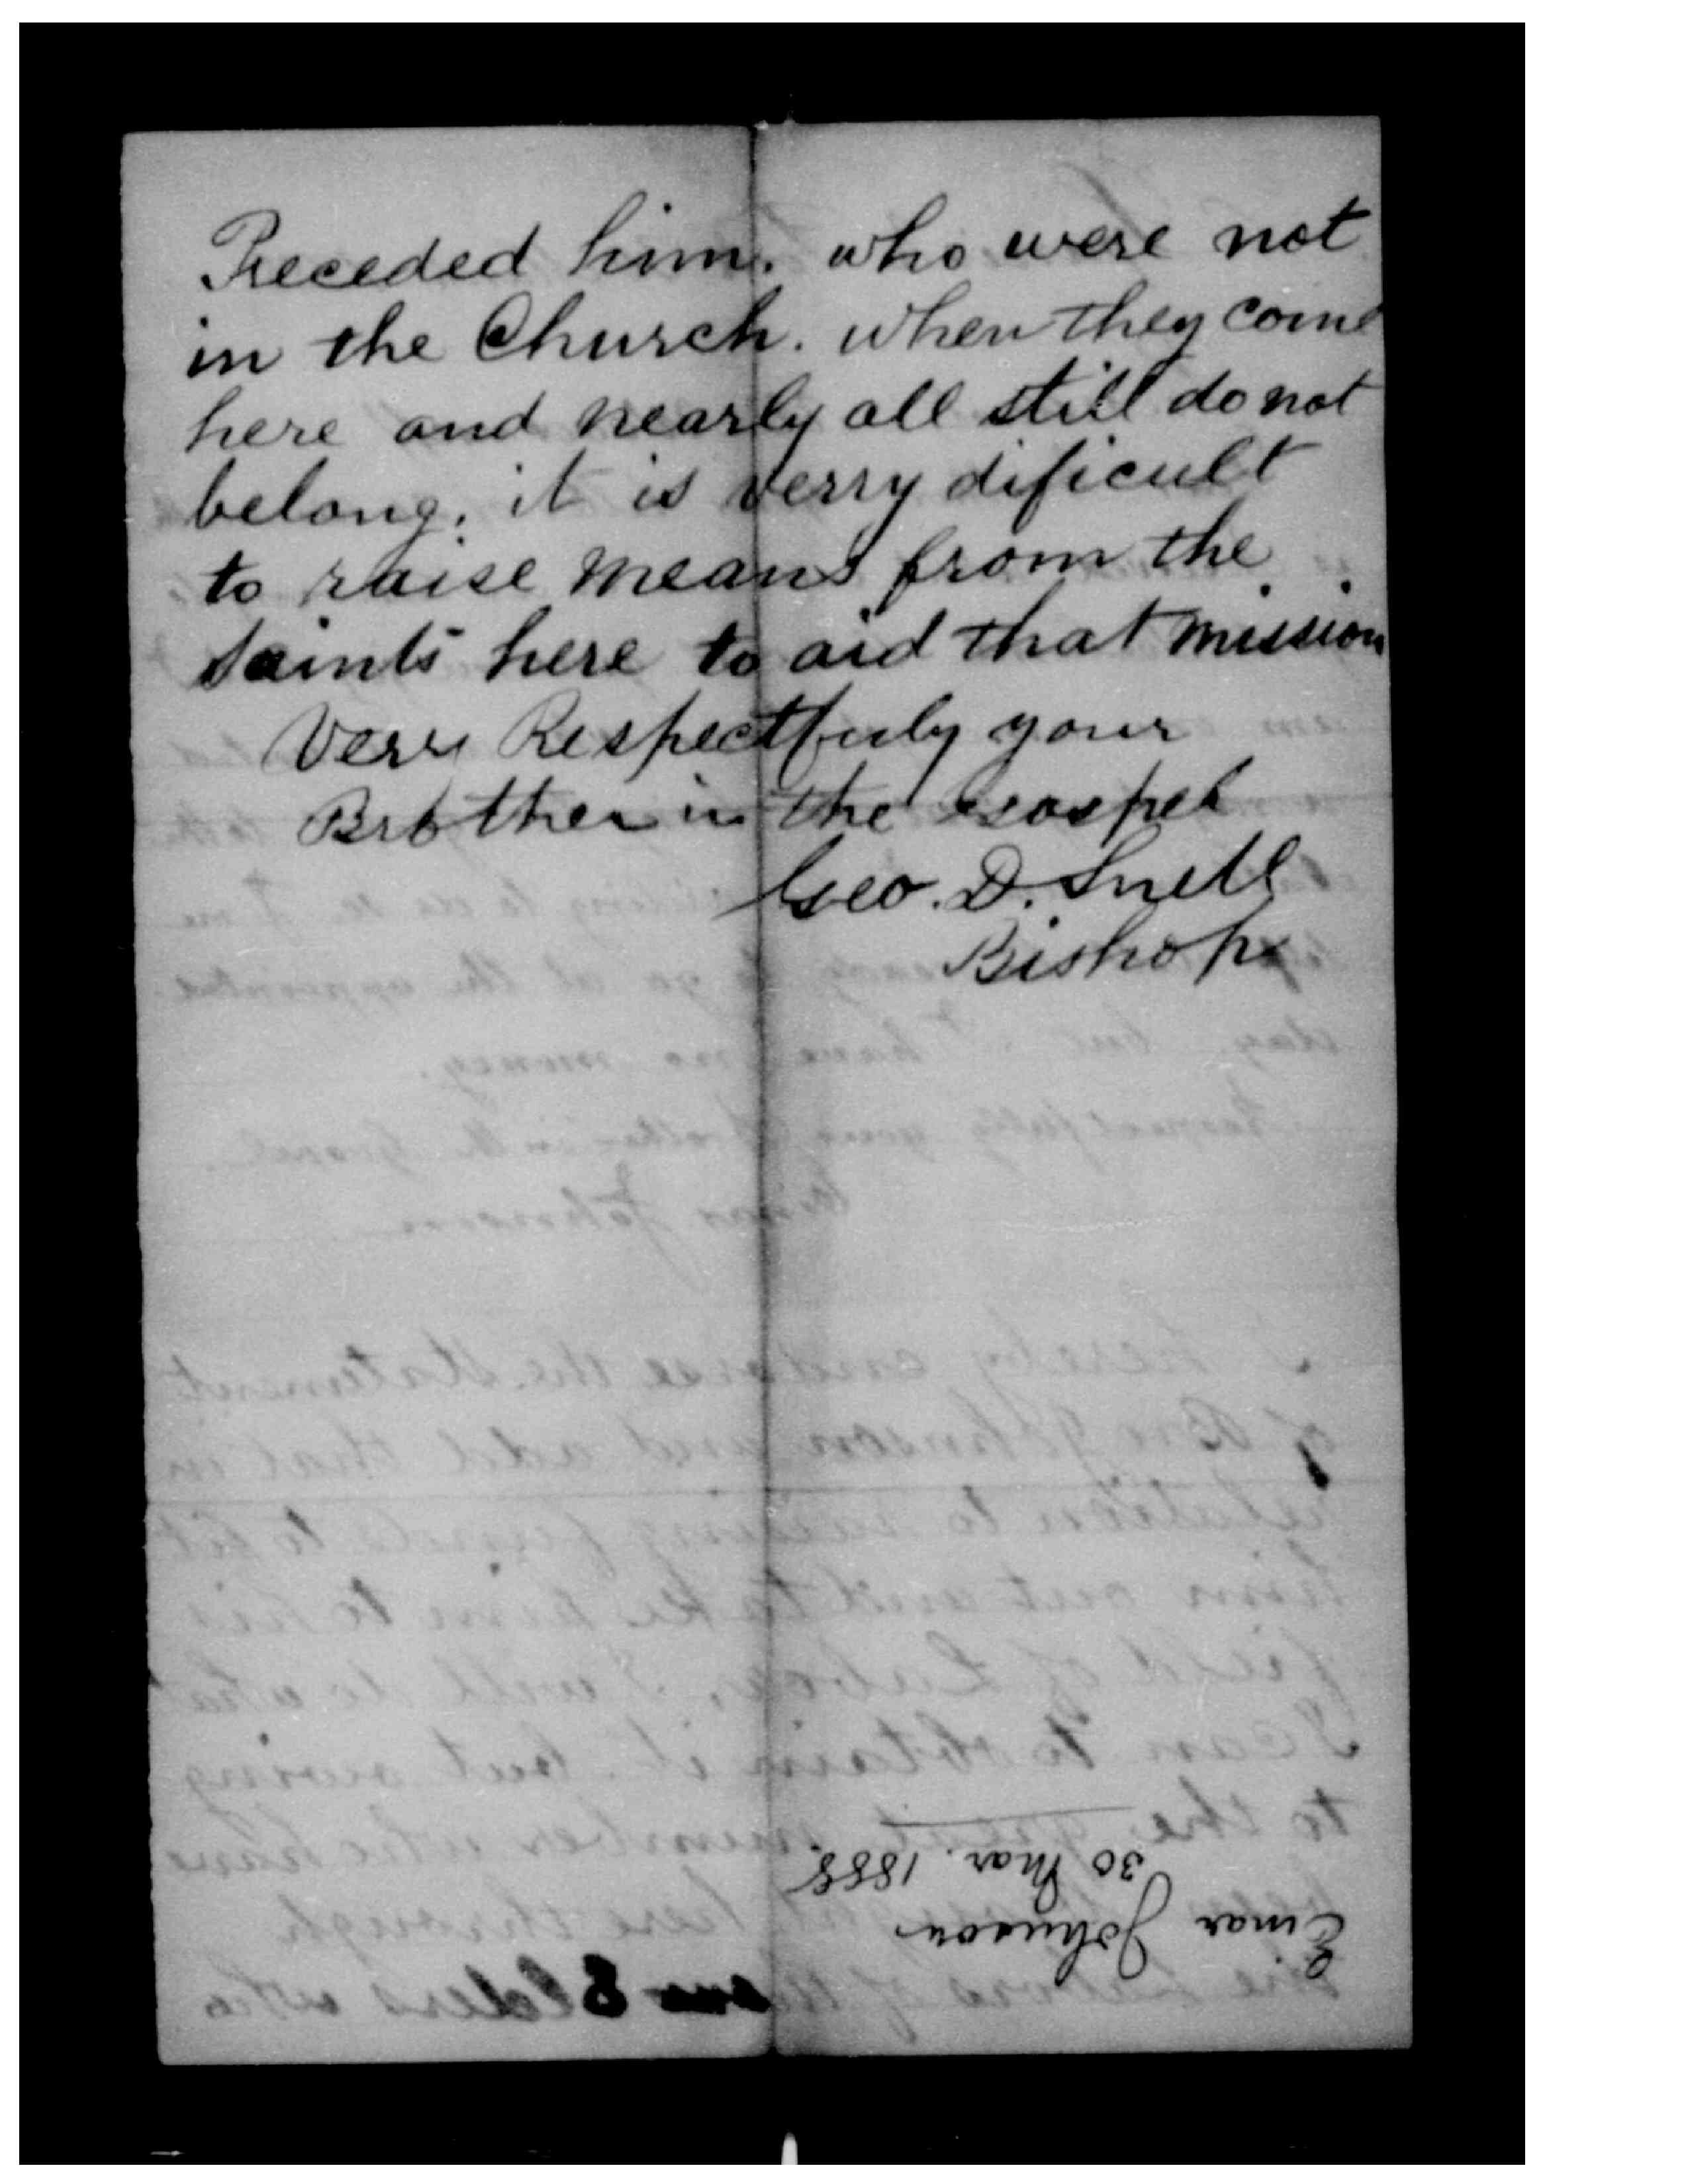 Preceded him. who were not
in the Church. when they come
here and nearly all still do not
belong. it is verry dificult
to raise means from the
saints here to aid that mission
Very Respectfuly your
Brother in the Gospel
Geo. D. Snell
Bishop
Einar Johnson
30 Mar. 1888
day but I have no money.
Respectfully your Brother in the Gospel
Einar Johnson
I hereby endorse the statement
of Bro Johnson and add that in
relation to raising funds to fit
him out and take him to his
field of Labor, I will do what
I can to obtain it. but owing
to the great number who have
been here through
the Labors of Elders who